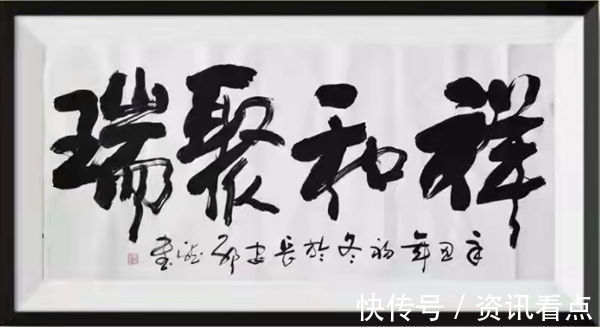 祥和聚瑞
辛丑年初冬於長安 書
快传号 / 资讯看点